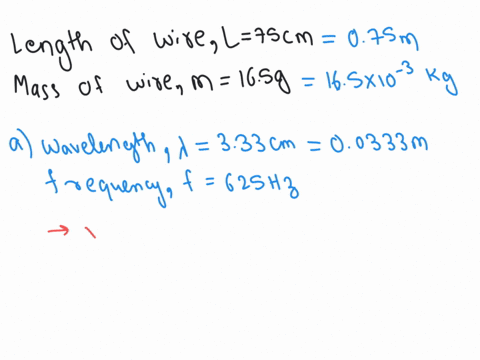 Length of wire, L = 75cm = 0.75m
Mass of wire, m = 16.5g = 16.5x10⁻³ Kg
a) wavelength, λ = 3.33cm = 0.0333m
frequency, f = 625Hz
→